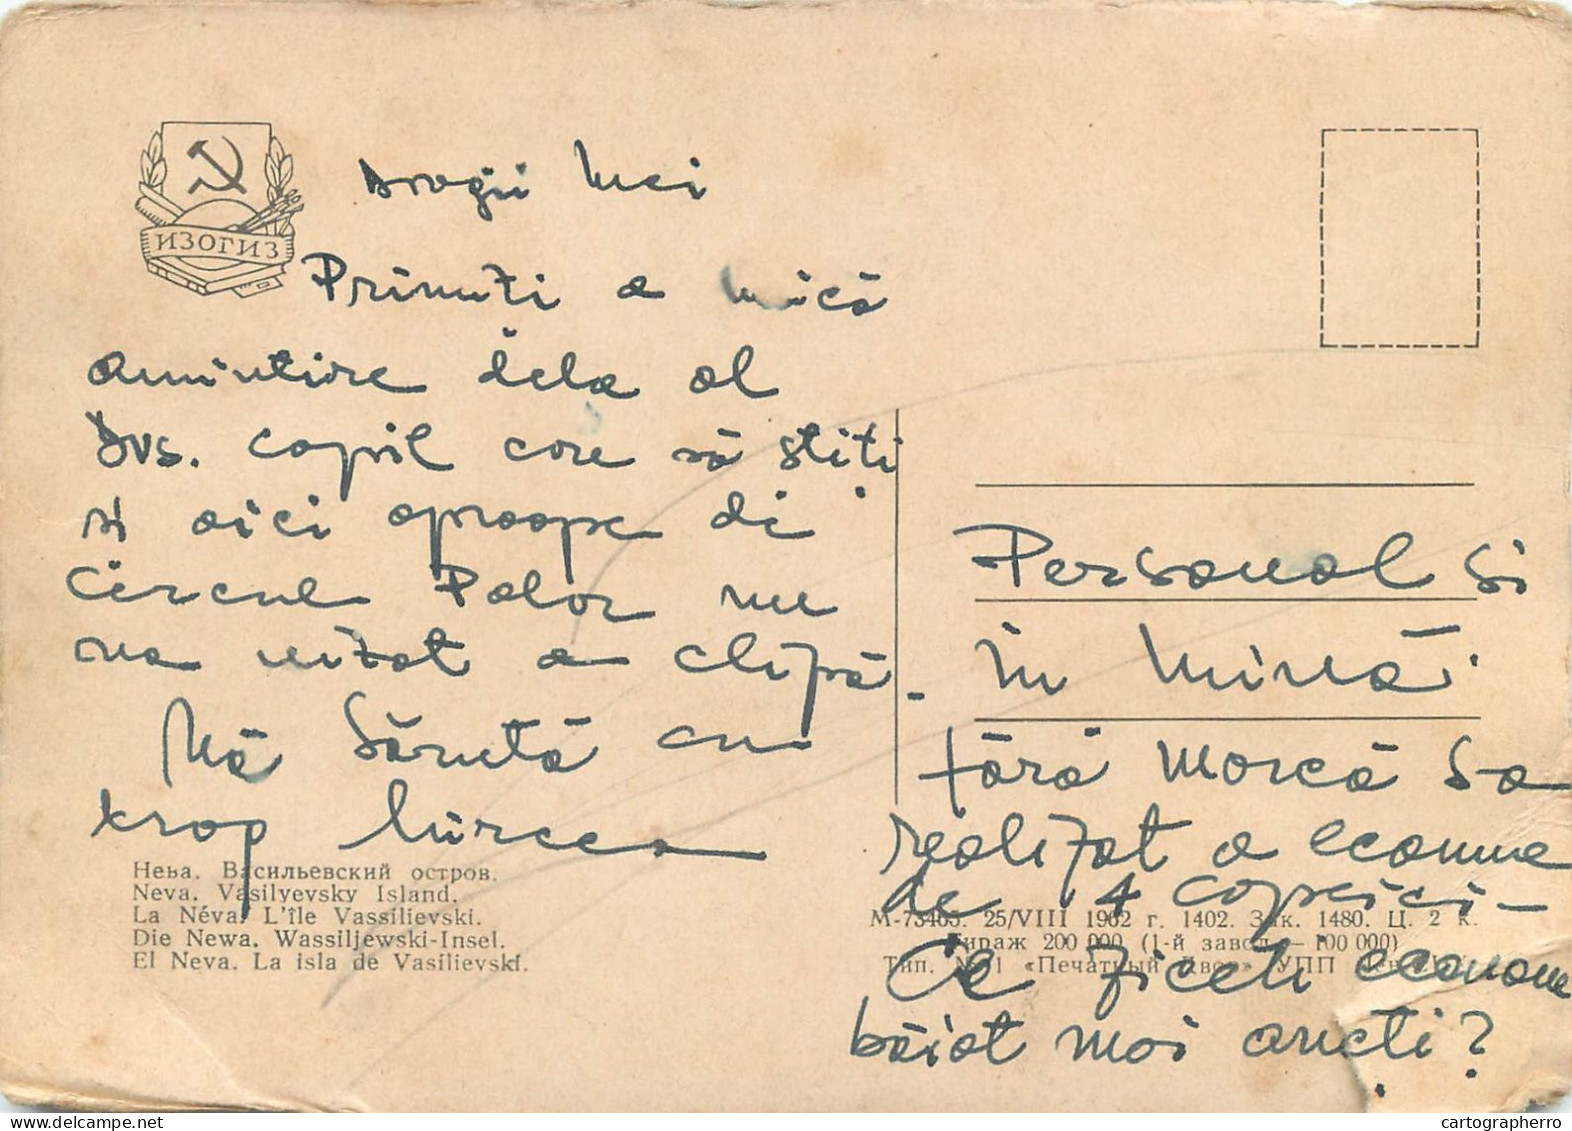 ИЗОГИЗ
Dragii mei
Primiți a mică
amintire dela al
Dvs. copil care să știți
și aici aproape de
cercul Polar nu
va uitat a clipă.
Vă sărută cu
drag Mircea
Нева. Васильевский остров.
Neva. Vasilyevsky Island.
La Néva. L'île Vassilievski.
Die Newa. Wassiljewski-Insel.
El Neva. La isla de Vasilievski.
Personal si
în mină
fără marcă sa
realizat a econome
de 4 copeici –
М-73465. 25/VIII 1962 г. 1402. Зак. 1480. Ц. 2 к.
Тираж 200 000 (1-й завод — 100 000)
Тип. № 1 «Печатный Двор» УПП
Ce ziceti econom
băiat mai aveti?
cartographerro